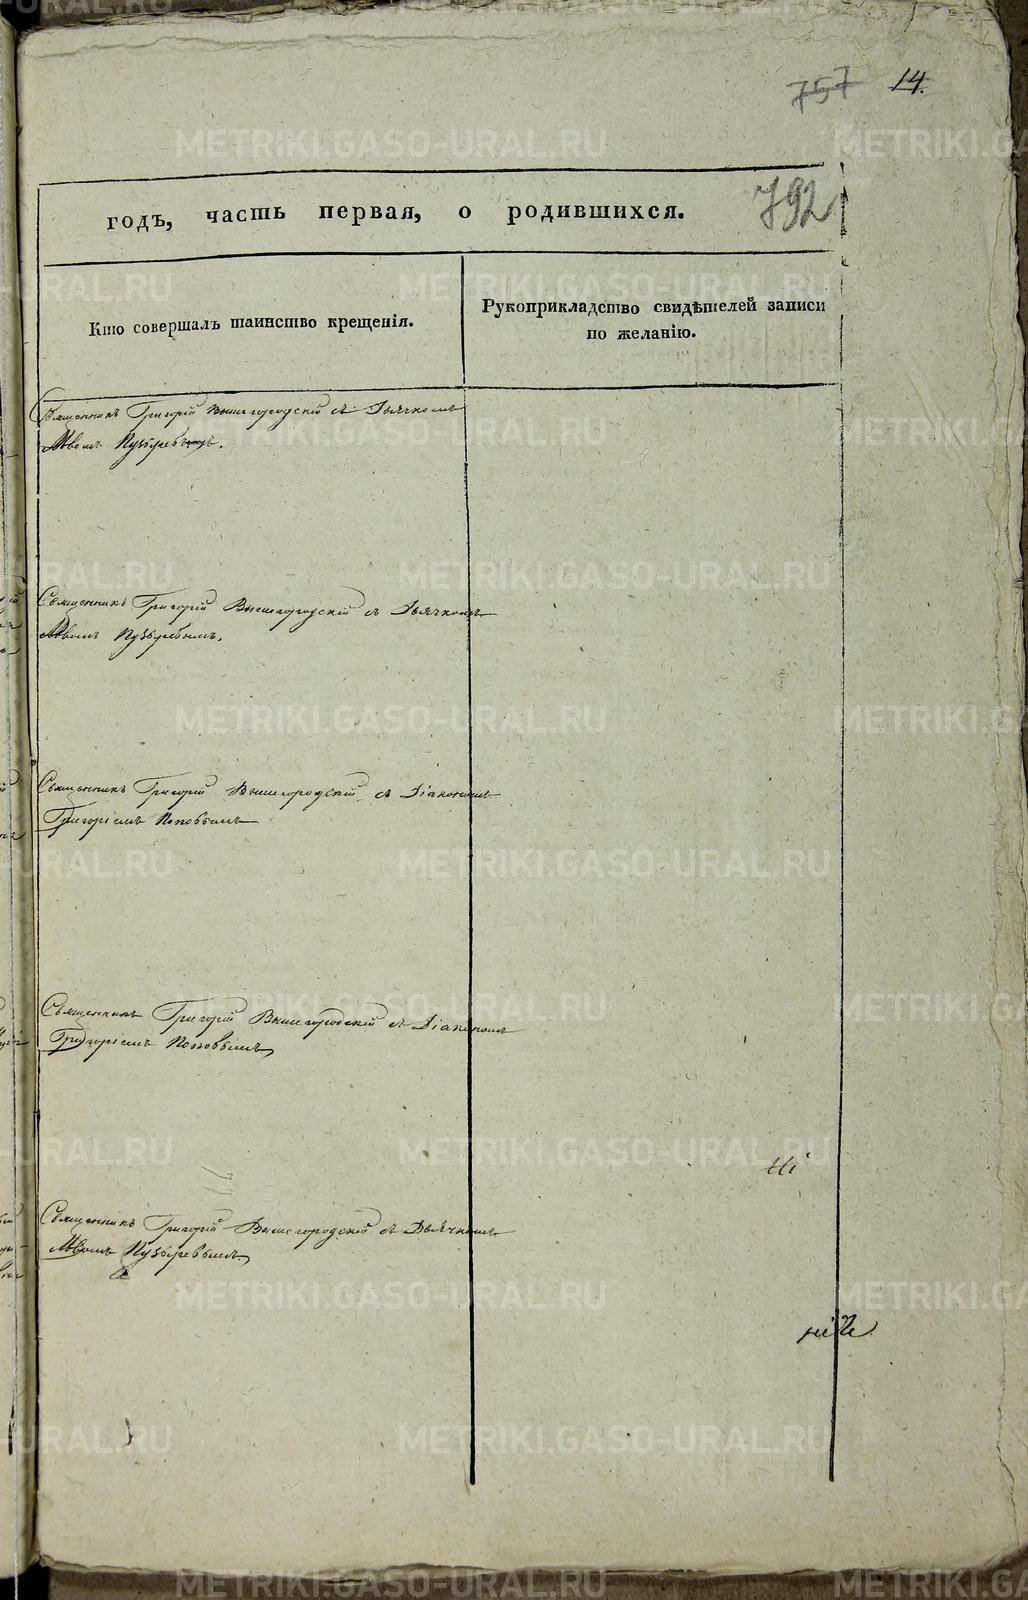 757 14.
792
годъ, часть первая, о родившихся.
Кто совершалъ таинство крещенія.
Рукоприкладство свидѣтелей записи
по желанію.
Священникъ Григорій Вышегородскій съ Дьячкомъ
Львомъ Пузыревымъ.
Священникъ Григорій Вышегородскій съ Дьячкомъ
Львомъ Пузыревымъ.
Священникъ Григорій Вышегородскій съ Діакономъ
Григоріемъ Поповымъ
Священникъ Григорій Вышегородскій съ Діакономъ
Григоріемъ Поповымъ
Священникъ Григорій Вышегородскій съ Дьячкомъ
Львомъ Пузыревымъ
METRIKI.GASO-URAL.RU